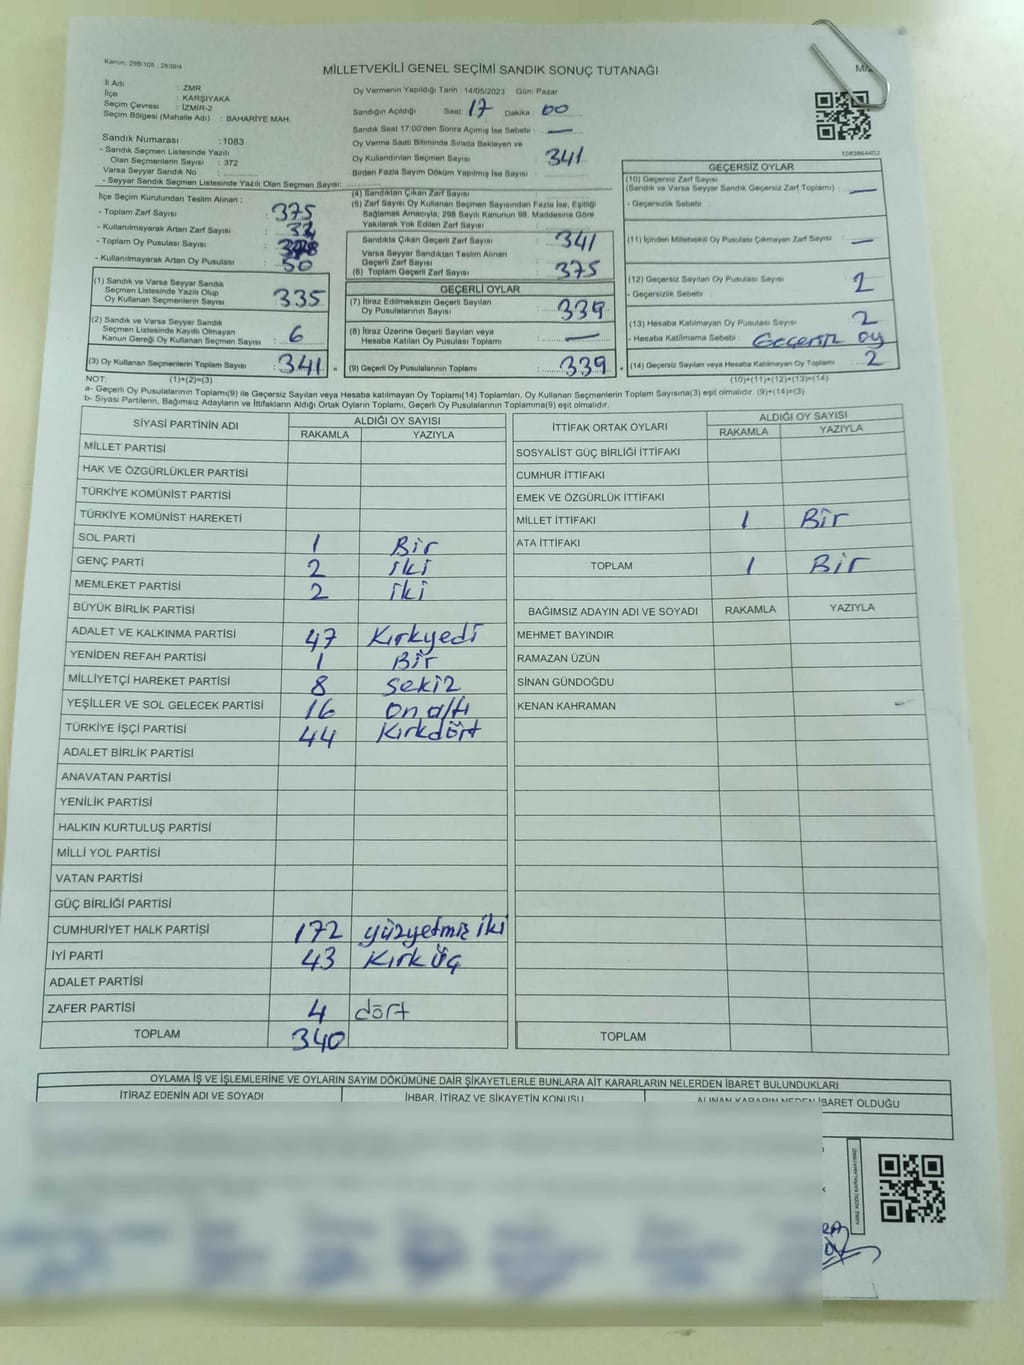 Kanun: 298/105 ; 2839/4
MİLLETVEKİLİ GENEL SEÇİMİ SANDIK SONUÇ TUTANAĞI
İl Adı : ZMR
İlçe : KARŞIYAKA
Seçim Çevresi : İZMİR-2
Seçim Bölgesi (Mahalle Adı) : BAHARİYE MAH.
Sandık Numarası : 1083
- Sandık Seçmen Listesinde Yazılı
Olan Seçmenlerin Sayısı : 372
Varsa Seyyar Sandık No :
- Seyyar Sandık Seçmen Listesinde Yazılı Olan Seçmen Sayısı:
Oy Vermenin Yapıldığı Tarih : 14/05/2023 Gün: Pazar
Sandığın Açıldığı Saat: 17 Dakika : 00
Sandık Saat 17:00'den Sonra Açımış İse Sebebi : —
Oy Verme Saati Bitiminde Sırada Bekleyen ve
Oy Kullandırılan Seçmen Sayısı : 341
Birden Fazla Sayım Döküm Yapılmış İse Sayısı :
1083864402
İlçe Seçim Kurulundan Teslim Alınan ;
- Toplam Zarf Sayısı : 375
- Kullanılmayarak Artan Zarf Sayısı :
- Toplam Oy Pusulası Sayısı :
- Kullanılmayarak Artan Oy Pusulası : 50
(1) Sandık ve Varsa Seyyar Sandık
Seçmen Listesinde Yazılı Olup
Oy Kullanan Seçmenlerin Sayısı : 335
(2) Sandık ve Varsa Seyyar Sandık
Seçmen Listesinde Kayıtlı Olmayan
Kanun Gereği Oy Kullanan Seçmen Sayısı : 6
(3) Oy Kullanan Seçmenlerin Toplam Sayısı : 341
(4) Sandıktan Çıkan Zarf Sayısı
(5) Zarf Sayısı Oy Kullanan Seçmen Sayısından Fazla İse, Eşitliği
Sağlamak Amacıyla, 298 Sayılı Kanunun 98. Maddesine Göre
Yakılarak Yok Edilen Zarf Sayısı :
Sandıkta Çıkan Geçerli Zarf Sayısı : 341
Varsa Seyyar Sandıktan Teslim Alınan
Geçerli Zarf Sayısı
(6) Toplam Geçerli Zarf Sayısı : 375
GEÇERLİ OYLAR
(7) İtiraz Edilmeksizin Geçerli Sayılan
Oy Pusulalarının Sayısı : 339
(8) İtiraz Üzerine Geçerli Sayılan veya
Hesaba Katılan Oy Pusulası Toplamı : —
(9) Geçerli Oy Pusulalarının Toplamı : 339
GEÇERSİZ OYLAR
(10) Geçersiz Zarf Sayısı
(Sandık ve Varsa Seyyar Sandık Geçersiz Zarf Toplamı) : —
- Geçersizlik Sebebi :
(11) İçinden Milletvekili Oy Pusulası Çıkmayan Zarf Sayısı : —
(12) Geçersiz Sayılan Oy Pusulası Sayısı : 2
- Geçersizlik Sebebi :
(13) Hesaba Katılmayan Oy Pusulası Sayısı : 2
- Hesaba Katılmama Sebebi : Geçersiz oy
(14) Geçersiz Sayılan veya Hesaba Katılmayan Oy Toplamı : 2
NOT: (1)+(2)=(3) (10)+(11)+(12)+(13)=(14)
a- Geçerli Oy Pusulalarının Toplamı(9) ile Geçersiz Sayılan veya Hesaba katılmayan Oy Toplamı(14) Toplamları, Oy Kullanan Seçmenlerin Toplam Sayısına(3) eşit olmalıdır. (9)+(14)=(3)
b- Siyasi Partilerin, Bağımsız Adayların ve İttifakların Aldığı Ortak Oyların Toplamı, Geçerli Oy Pusulalarının Toplamına(9) eşit olmalıdır.
SİYASİ PARTİNİN ADI ALDIĞI OY SAYISI
RAKAMLA YAZIYLA
MİLLET PARTİSİ
HAK VE ÖZGÜRLÜKLER PARTİSİ
TÜRKİYE KOMÜNİST PARTİSİ
TÜRKİYE KOMÜNİST HAREKETİ
SOL PARTİ 1 Bir
GENÇ PARTİ 2 iki
MEMLEKET PARTİSİ 2 iki
BÜYÜK BİRLİK PARTİSİ
ADALET VE KALKINMA PARTİSİ 47 Kırkyedi
YENİDEN REFAH PARTİSİ 1 Bir
MİLLİYETÇİ HAREKET PARTİSİ 8 sekiz
YEŞİLLER VE SOL GELECEK PARTİSİ 16 on altı
TÜRKİYE İŞÇİ PARTİSİ 44 Kırkdört
ADALET BİRLİK PARTİSİ
ANAVATAN PARTİSİ
YENİLİK PARTİSİ
HALKIN KURTULUŞ PARTİSİ
MİLLİ YOL PARTİSİ
VATAN PARTİSİ
GÜÇ BİRLİĞİ PARTİSİ
CUMHURİYET HALK PARTİSİ 172 yüzyetmiş iki
İYİ PARTİ 43 Kırk üç
ADALET PARTİSİ
ZAFER PARTİSİ 4 dört
TOPLAM 340
İTTİFAK ORTAK OYLARI ALDIĞI OY SAYISI
RAKAMLA YAZIYLA
SOSYALİST GÜÇ BİRLİĞİ İTTİFAKI
CUMHUR İTTİFAKI
EMEK VE ÖZGÜRLÜK İTTİFAKI
MİLLET İTTİFAKI 1 Bir
ATA İTTİFAKI
TOPLAM 1 Bir
BAĞIMSIZ ADAYIN ADI VE SOYADI RAKAMLA YAZIYLA
MEHMET BAYINDIR
RAMAZAN ÜZÜN
SİNAN GÜNDOĞDU
KENAN KAHRAMAN
TOPLAM
OYLAMA İŞ VE İŞLEMLERİNE VE OYLARIN SAYIM DÖKÜMÜNE DAİR ŞİKAYETLERLE BUNLARA AİT KARARLARIN NELERDEN İBARET BULUNDUKLARI
İTİRAZ EDENİN ADI VE SOYADI İHBAR, İTİRAZ VE ŞİKAYETİN KONUSU ALINAN KARARIN NEDEN İBARET OLDUĞU